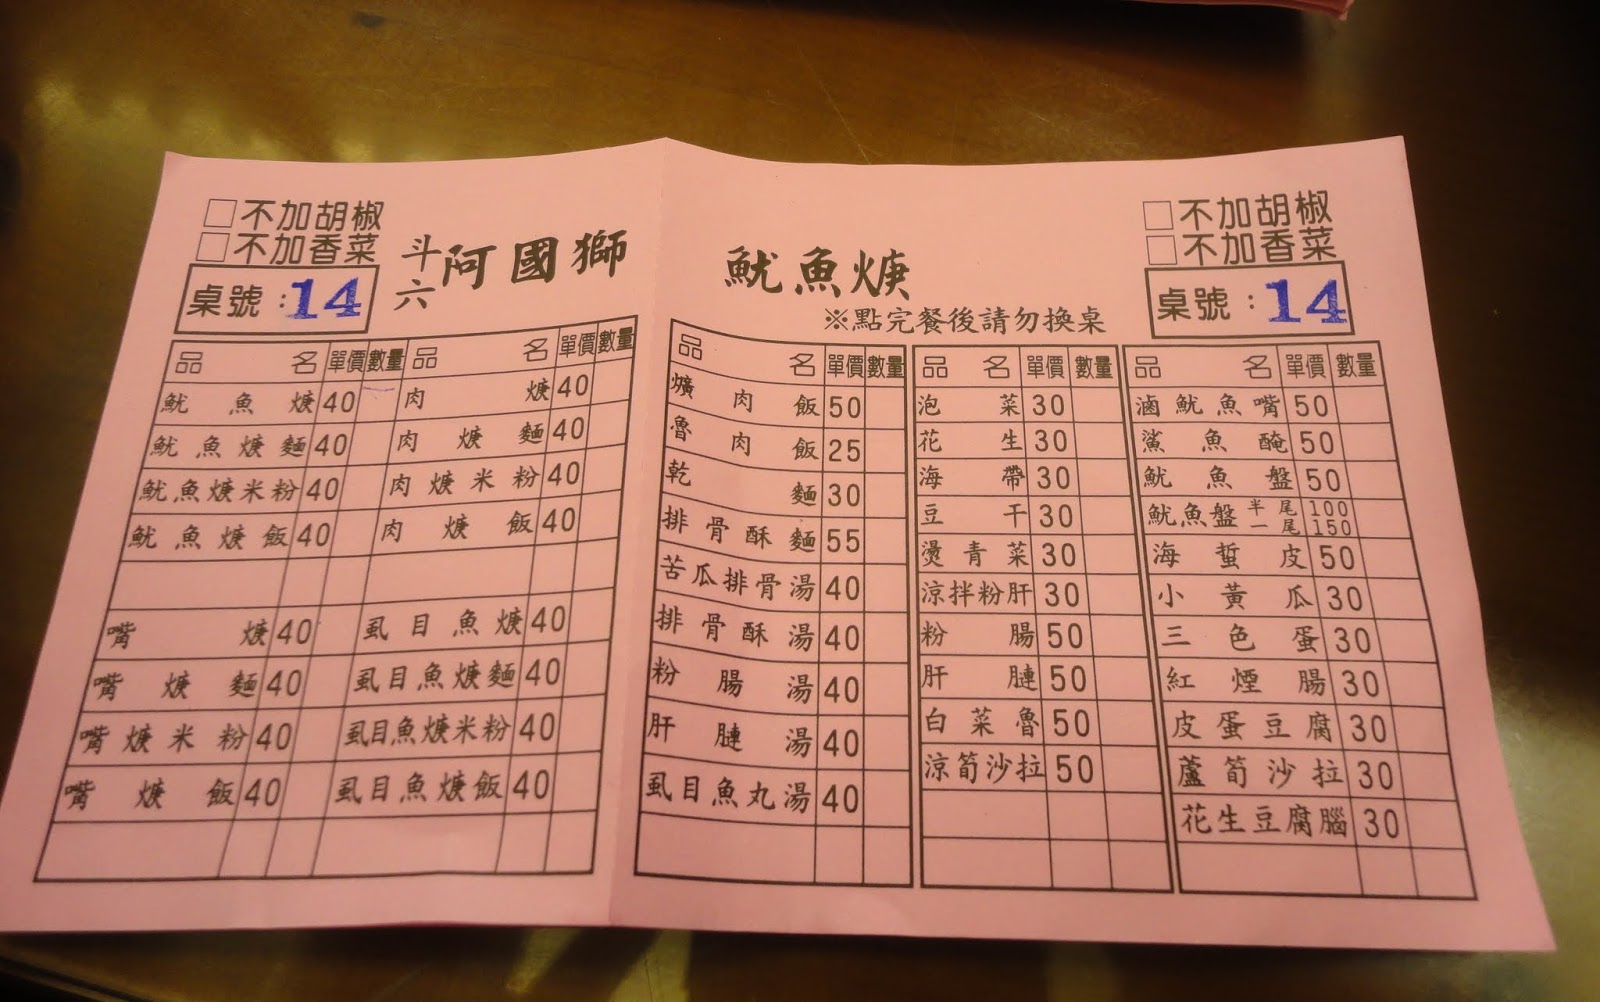 □不加胡椒
□不加香菜
桌號：14
斗六 阿國獅 魷魚焿
※點完餐後請勿換桌
□不加胡椒
□不加香菜
桌號：14
品名 單價 數量 品名 單價 數量
魷魚焿 40 肉焿 40
魷魚焿麵 40 肉焿麵 40
魷魚焿米粉 40 肉焿米粉 40
魷魚焿飯 40 肉焿飯 40
嘴焿 40 虱目魚焿 40
嘴焿麵 40 虱目魚焿麵 40
嘴焿米粉 40 虱目魚焿米粉 40
嘴焿飯 40 虱目魚焿飯 40
品名 單價 數量
爌肉飯 50
魯肉飯 25
乾麵 30
排骨酥麵 55
苦瓜排骨湯 40
排骨酥湯 40
粉腸湯 40
肝腱湯 40
虱目魚丸湯 40
品名 單價 數量
泡菜 30
花生 30
海帶 30
豆干 30
燙青菜 30
涼拌粉肝 30
粉腸 50
肝腱 50
白菜魯 50
涼筍沙拉 50
品名 單價 數量
滷魷魚嘴 50
鯊魚醃 50
魷魚盤 50
魷魚盤 半尾 100
一尾 150
海蜇皮 50
小黃瓜 30
三色蛋 30
紅煙腸 30
皮蛋豆腐 30
蘆筍沙拉 30
花生豆腐腦 30